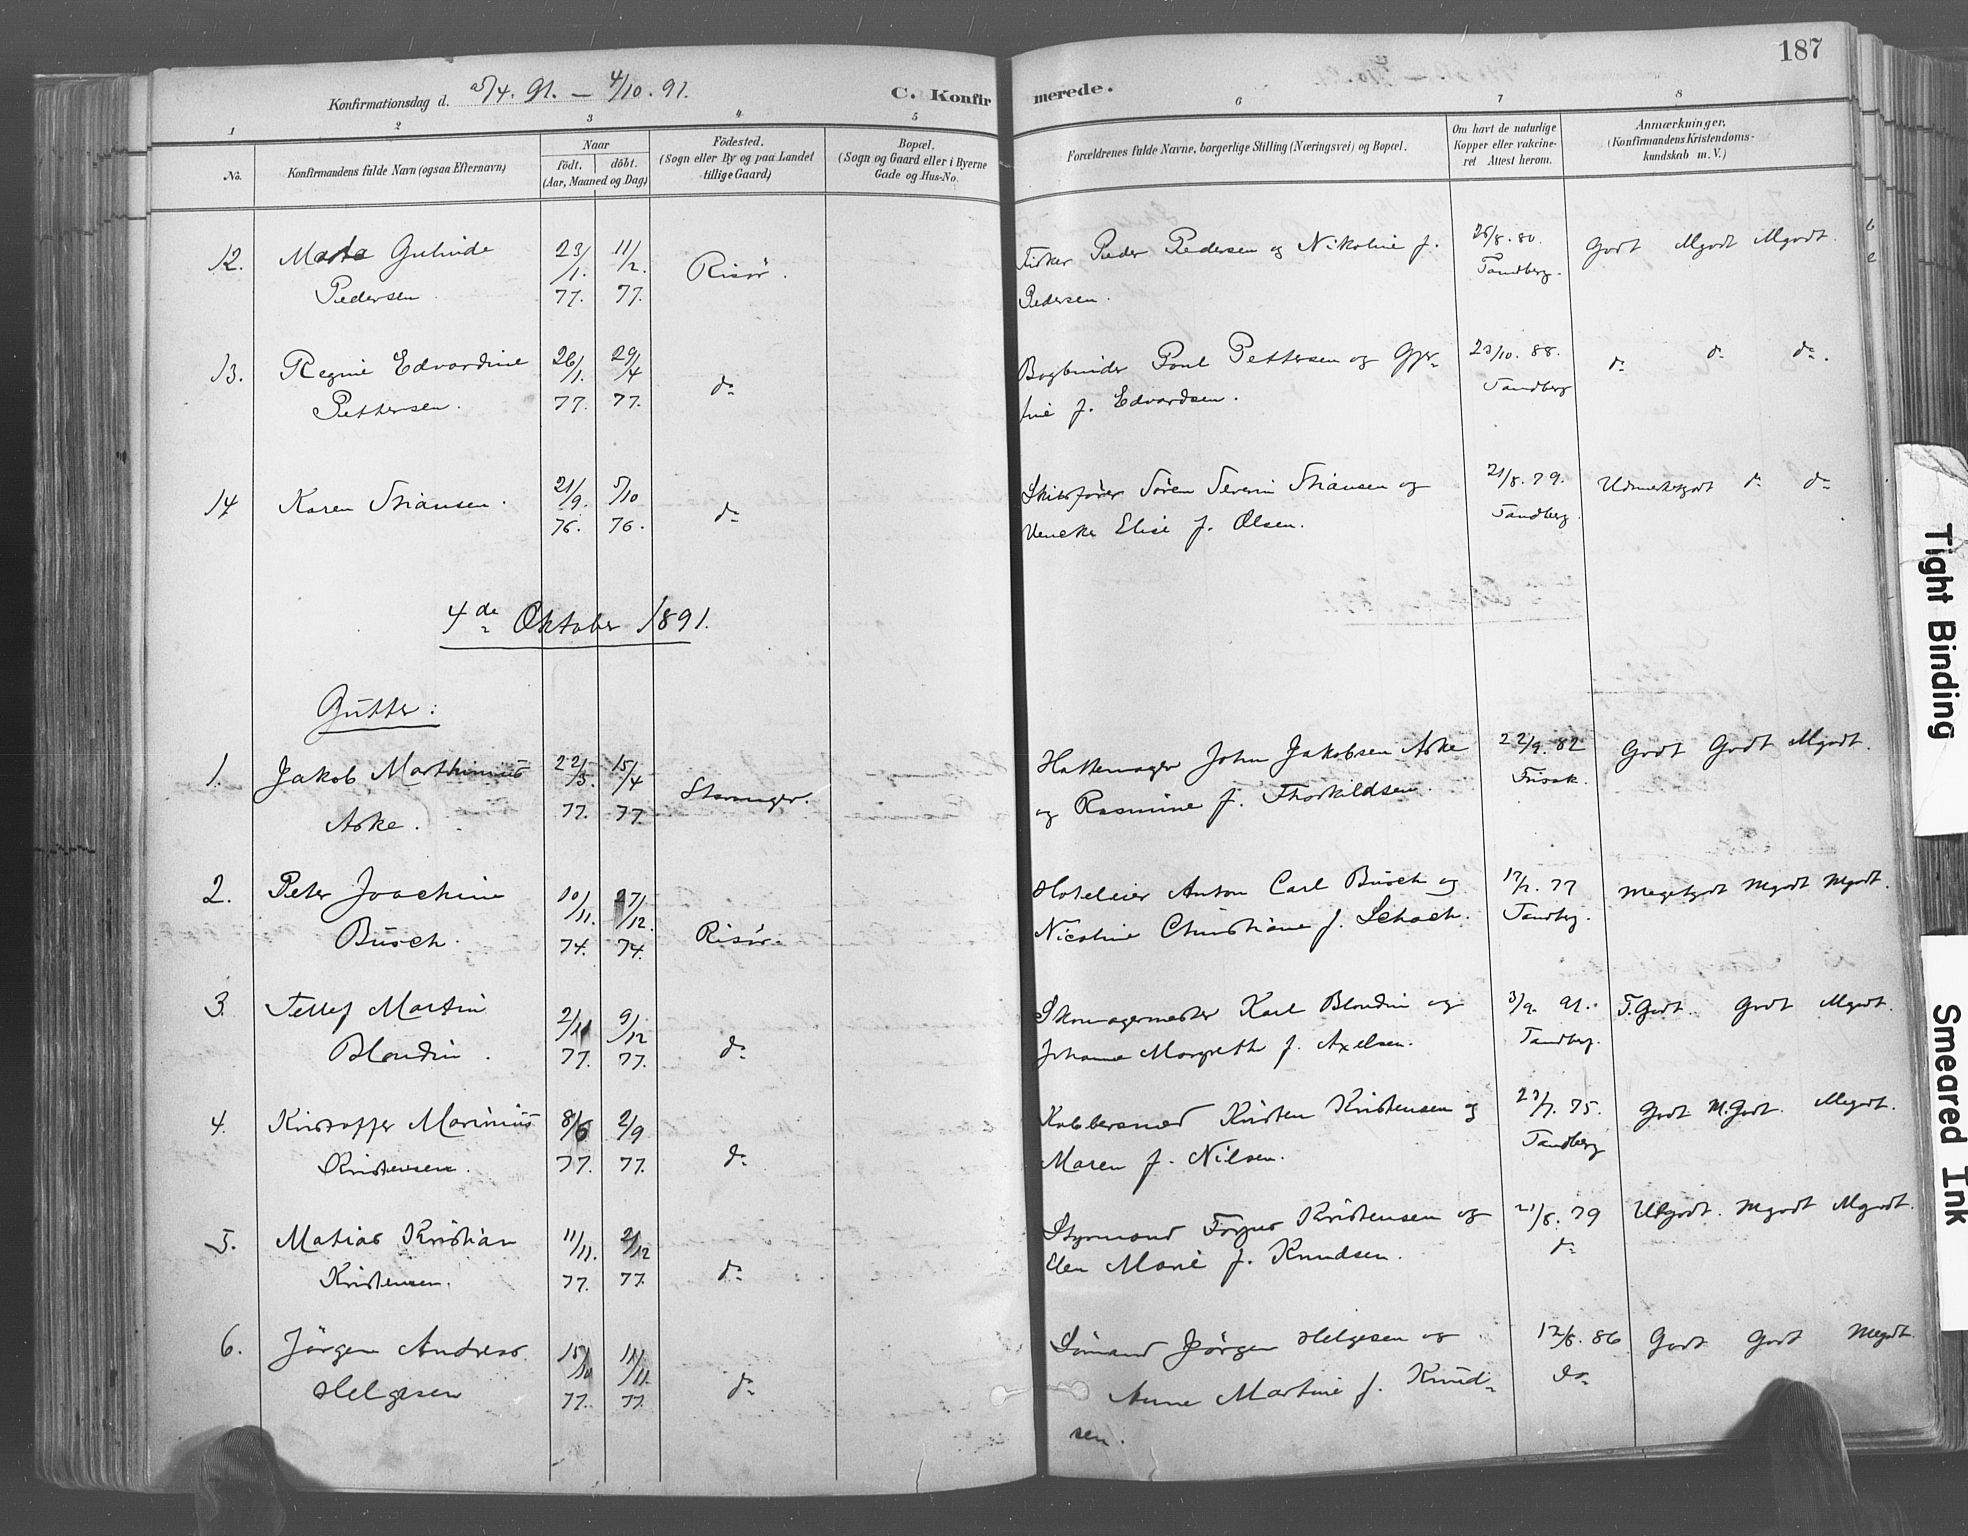 187
Konfirmationsdag d. 25/4. 91. — 4/10. 91.
C. Konfirmerede.
1 2 3 4 5 6 7 8
No.
Konfirmandens fulde Navn (ogsaa Efternavn)
Naar
födt. döbt.
(Aar, Maaned og Dag)
Födested.
(Sogn eller By og paa Landet
tillige Gaard)
Bopæl.
(Sogn og Gaard eller i Byerne
Gade og Hus-No.
Forældrenes fulde Navne, borgerlige Stilling (Næringsvei) og Bopæl.
Om havt de naturlige
Kopper eller vakcine-
ret Attest herom.
Anmærkninger.
(Konfirmandens Kristendoms-
kundskab m. V.)
12. Marta Gulinde 23/1. 11/2. Risör. Fisker Peder Pedersen og Nikoline f. 25/8. 80. Godt Mgodt Mgodt.
Pedersen 77. 77. Pedersen. Tandberg.
13. Regine Edvardine 26/1. 29/4 do Bogbinder Poul Pettersen og Gjer- 23/10. 88. do do do.
Pettersen. 77. 77. tine f. Edvardsen. Tandberg
14 Karen Stiansen. 21/9. 5/10 do Skibsfører Sören Severin Stiansen og 21/8. 79. Udmerketgodt do do
76. 76. Vencke Elise f. Olsen. Tandberg.
4de Oktober 1891.
Gutter:
1. Jakob Marthinius 22/3. 15/4 Stavanger. Hattemager John Jakobsen Aske 22/9. 82 Godt Godt Mgodt.
Aske. 77. 77. og Rasmine f. Thorkildsen.
2. Peter Joachim 10/11. 27/12. Risör. Hoteleier Anton Carl Busch og 17/7. 77 Megetgodt Mgodt Mgodt.
Busch. 74. 74. Nicoline Christiane f. Schach. Tandbg.
3. Tellef Martin 2/11 9/12 do Skomagermester Karl Blondin og 3/9. 91. T.Godt. Godt Mgodt.
Blondin. 77. 77. Johanne Margreth f. Axelsen. Tandbg.
4. Kristoffer Marinius 8/6 2/9 do Kobbersmed Kristen Kristensen og 23/7. 75. Godt M.Godt. Mgodt.
Kristensen. 77. 77. Maren f. Nilsen. Tandberg
5. Matias Kristian 11/11. 2/12 do Styrmand Kristensen og 21/8. 79 Mgodt Mgodt.
Kristensen. 77. 77. Elen Marie f. Knudsen. do
6. Jörgen Andreas 15/10 11/11. do Sömand Jörgen Helgesen og 12/8. 86 Godt Godt Megodt.
Helgesen 77. 77. Anne Martine f. Knud- do
sen.
Tight Binding
Smeared Ink